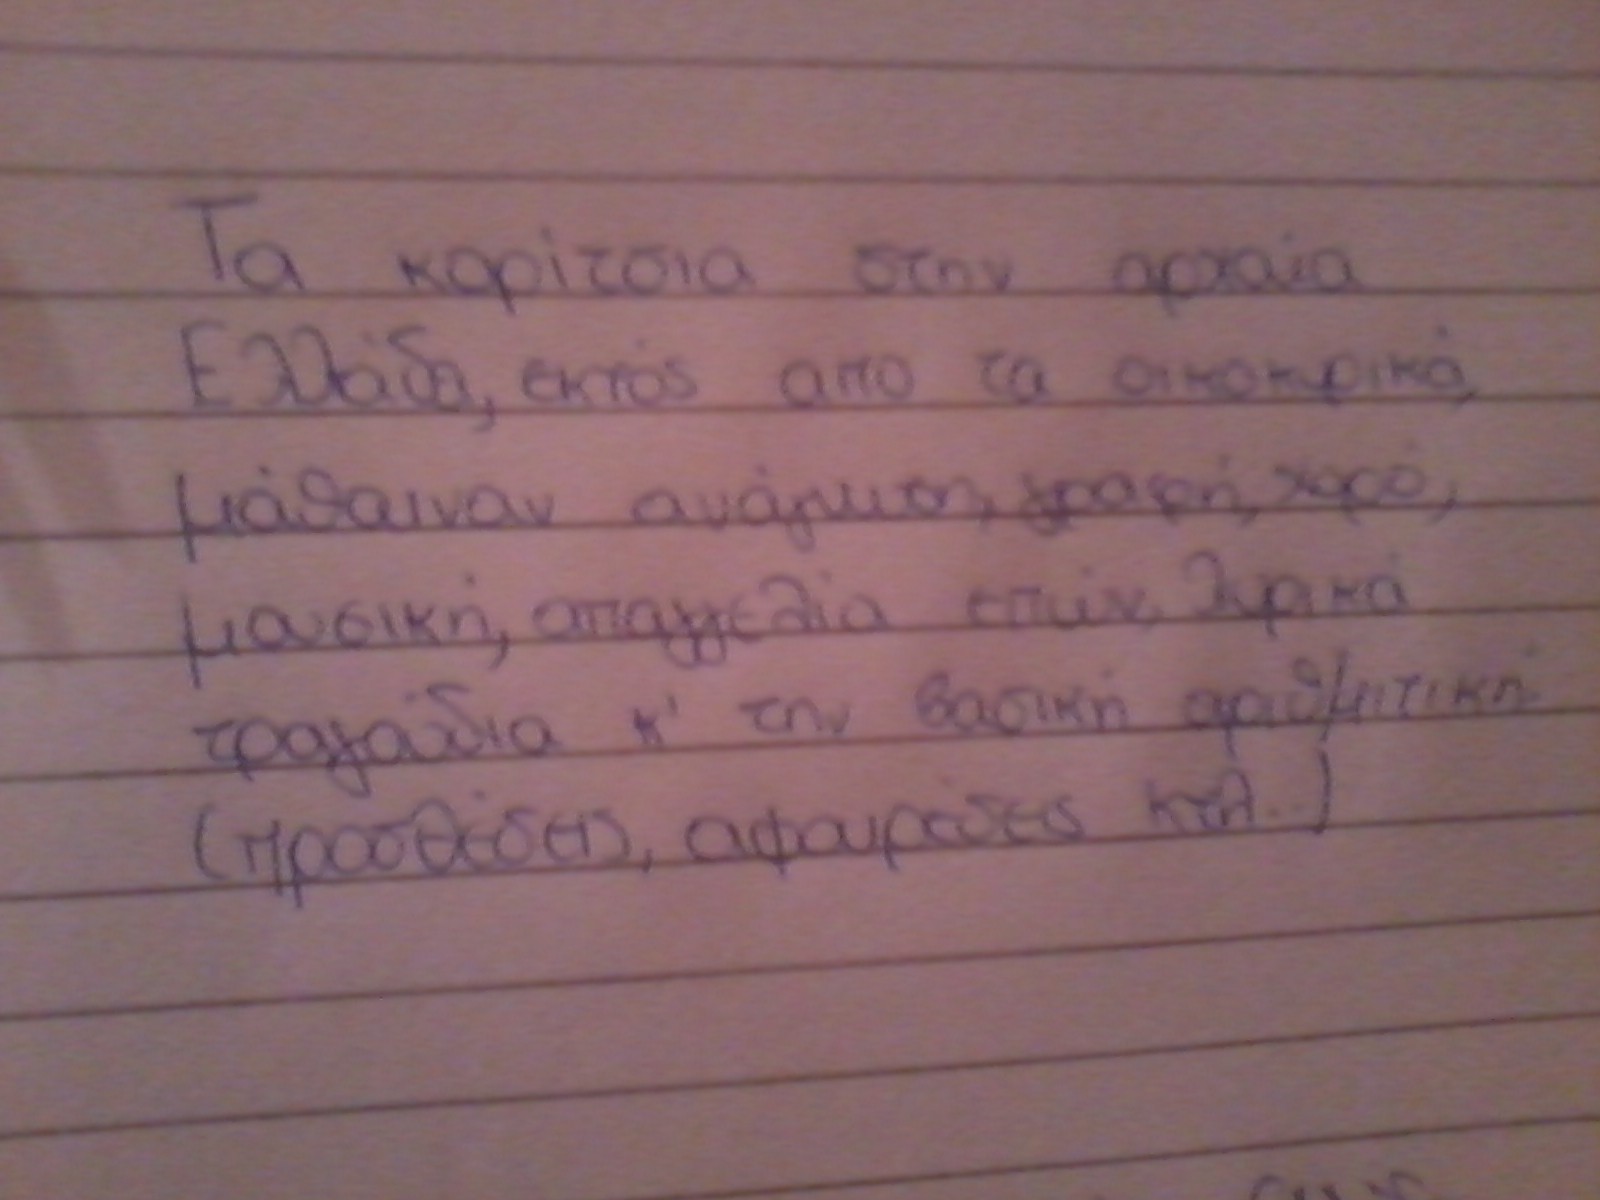 Τα κορίτσια στην αρχαία
Ελλάδα, εκτός απο τα οικοκυρικά,
μάθαιναν ανάγνωση, γραφή, χορό,
μουσική, απαγγελία επών, λυρικά
τραγούδια κ' την βασική αριθμητική
(προσθέσεις, αφαιρέσεις κτλ..)